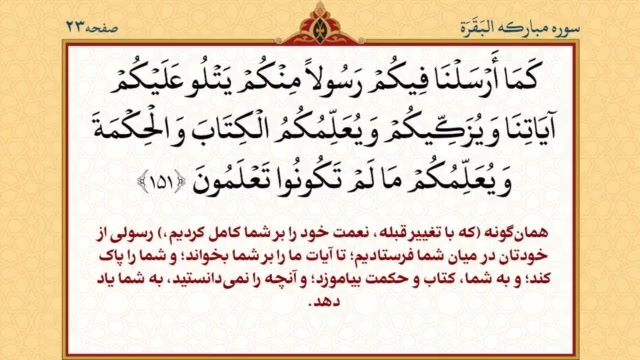 سوره مبارکه البَقَرَة
صفحه ۲۳
كَمَا أَرْسَلْنَا فِيكُمْ رَسُولاً مِنْكُمْ يَتْلُو عَلَيْكُمْ
آيَاتِنَا وَ يُزَكِّيكُمْ وَ يُعَلِّمُكُمُ الْكِتَابَ وَ الْحِكْمَةَ
وَ يُعَلِّمُكُمْ مَا لَمْ تَكُونُوا تَعْلَمُونَ ﴿۱۵۱﴾
همان‌گونه (که با تغییر قبله، نعمت خود را بر شما کامل کردیم،) رسولی از
خودتان در میان شما فرستادیم؛ تا آیات ما را بر شما بخواند؛ و شما را پاک
کند؛ و به شما، کتاب و حکمت بیاموزد؛ و آنچه را نمی‌دانستید، به شما یاد
دهد.